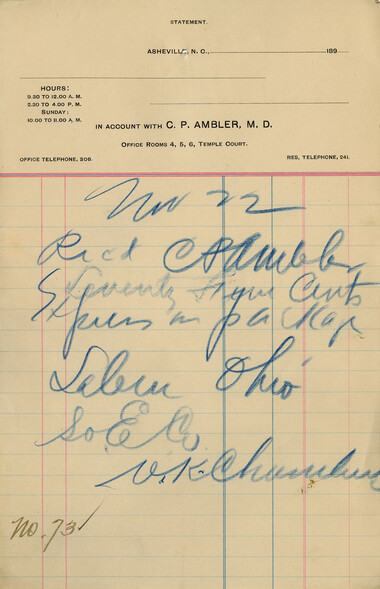 STATEMENT.
ASHEVILLE, N. C., 189
HOURS:
9.30 TO 12.00 A. M.
2.30 TO 4.00 P. M.
SUNDAY:
10.00 TO 11.00 A. M.
IN ACCOUNT WITH C. P. AMBLER, M. D.
OFFICE ROOMS 4, 5, 6, TEMPLE COURT.
OFFICE TELEPHONE, 308.
RES, TELEPHONE, 241.
Nov 22
Recd C P Ambler
Seventy five Cents
Express on package
Salem Ohio
So. E. Co.
V. K. Chambers
No. 73